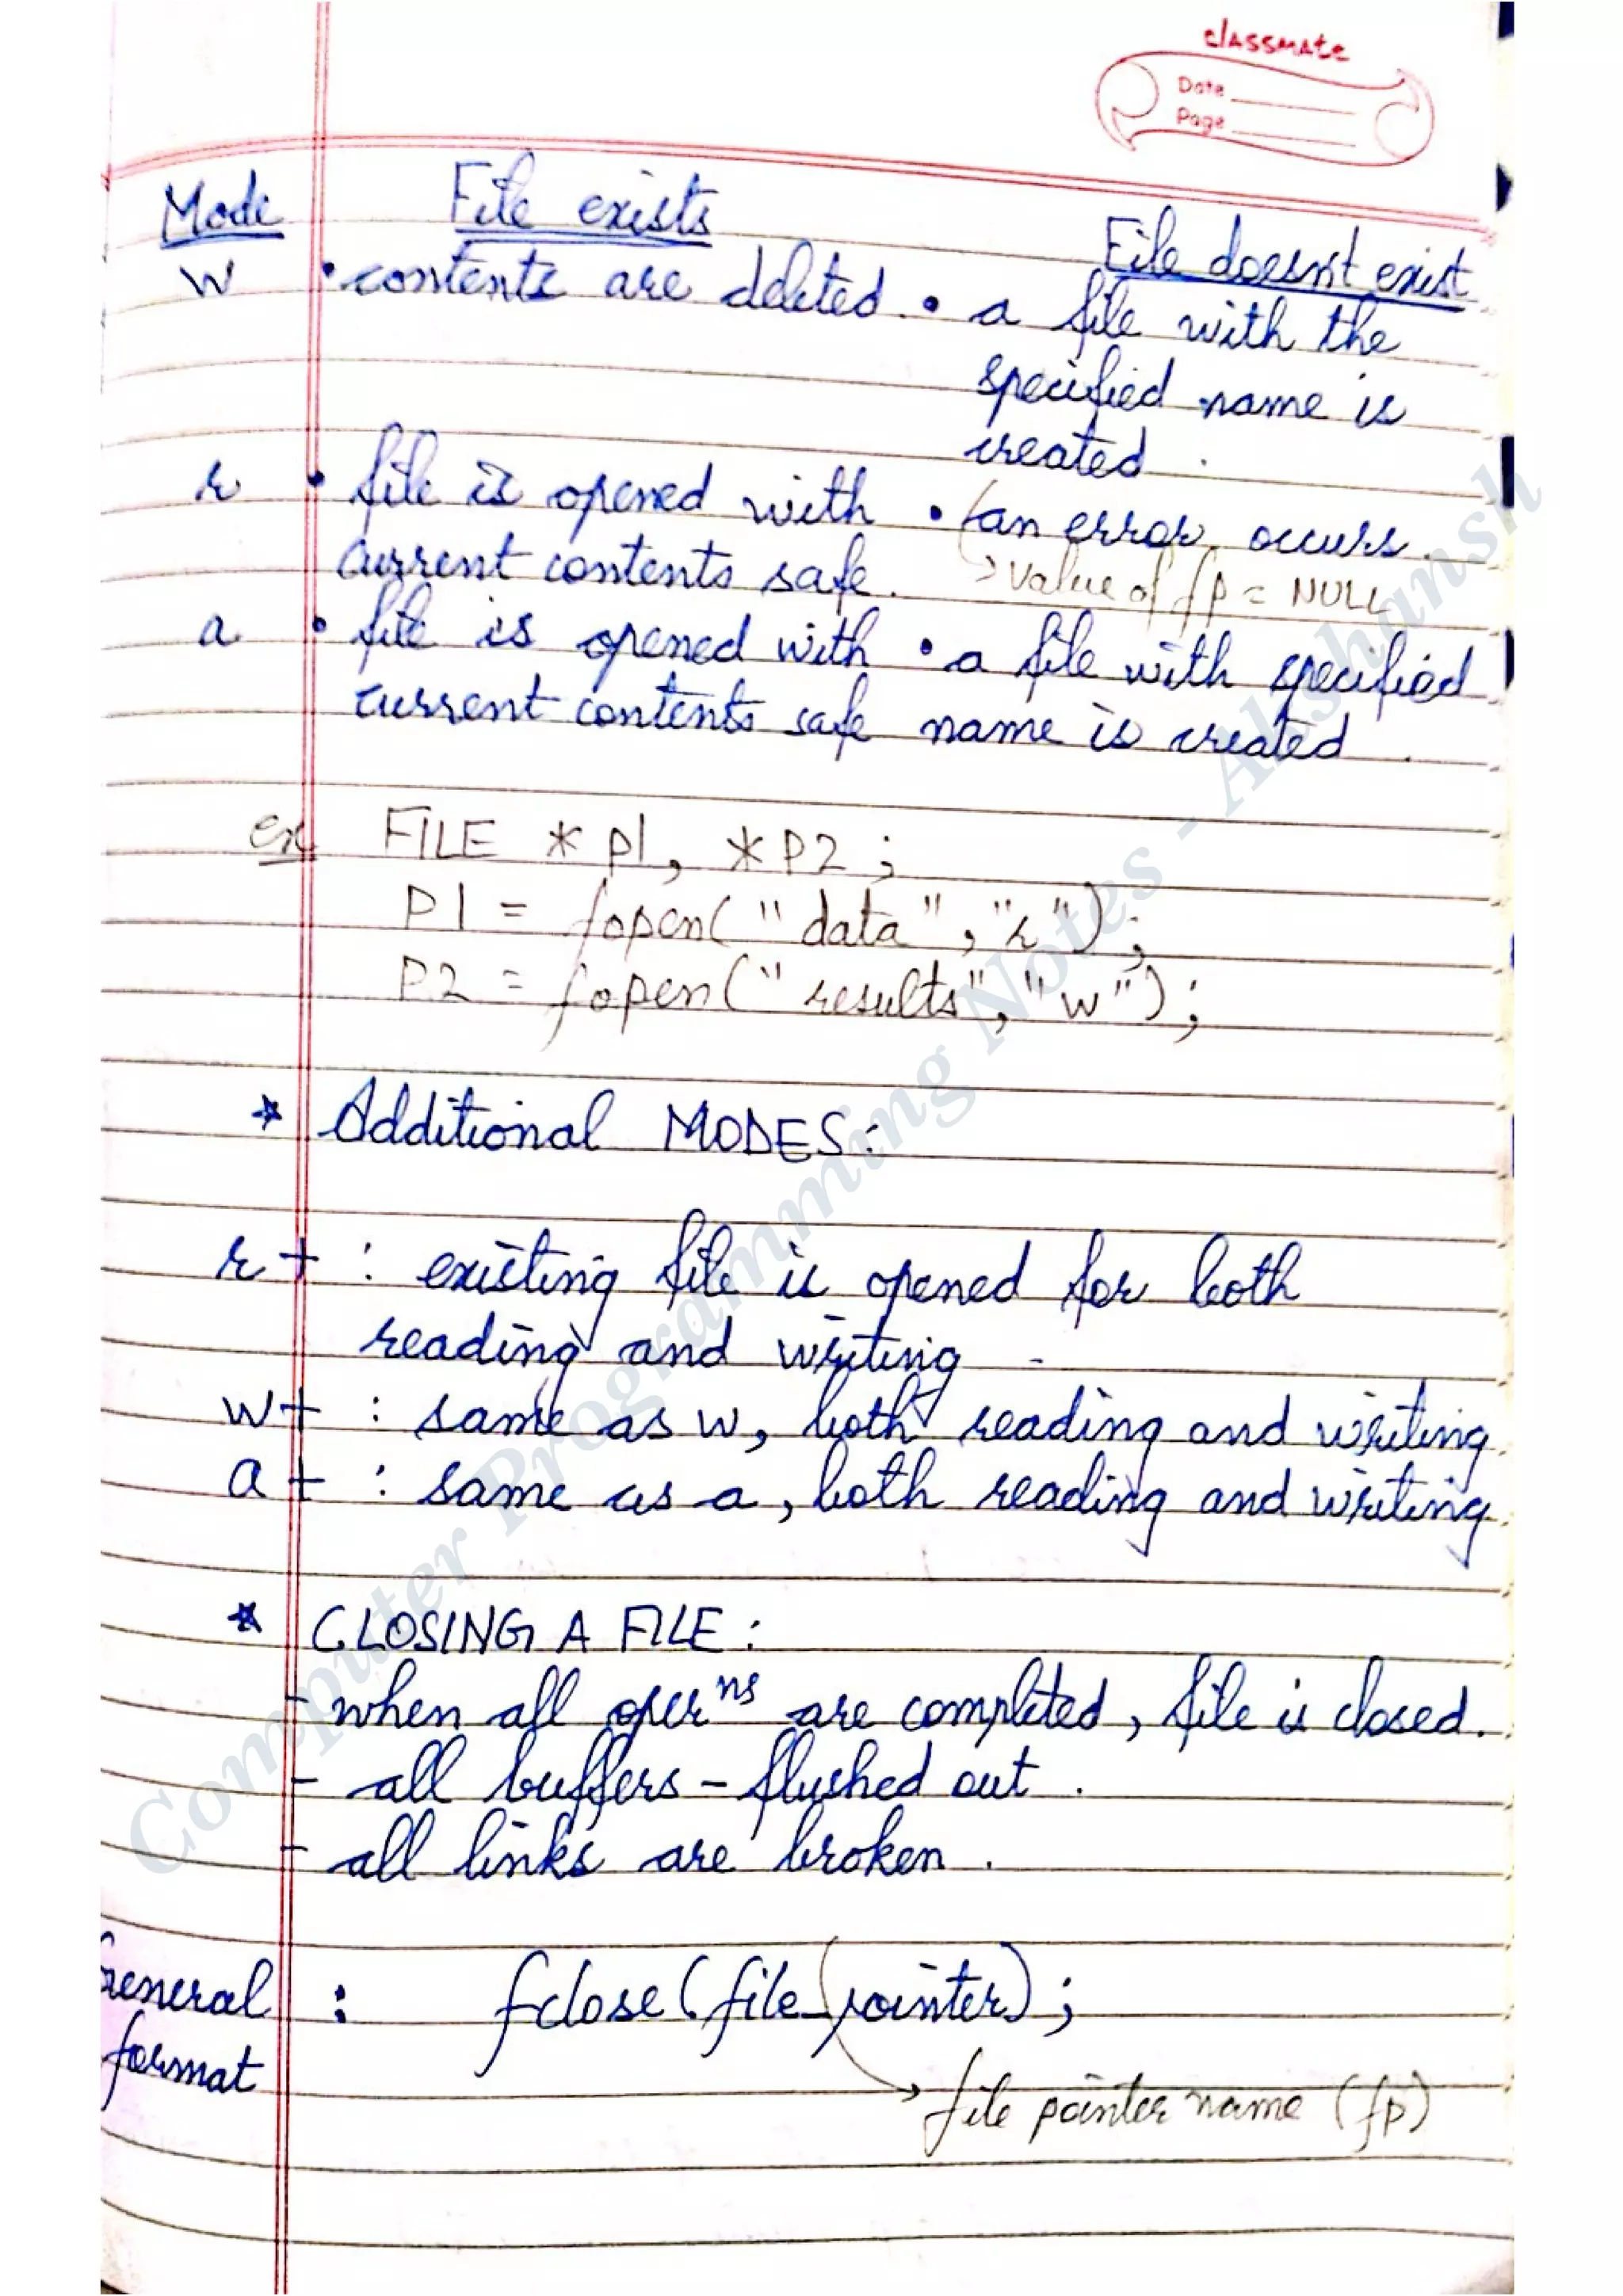 classmate
Date
Page
Mode File exists File doesn't exist
w • contents are deleted. • a file with the
specified name is
created.
r • file is opened with • (an error occurs.
current contents safe. → value of fp = NULL
a • file is opened with • a file with specified
current contents safe name is created.
ex FILE *p1, *p2;
P1 = fopen("data", "r");
P2 = fopen("results", "w");
* Additional MODES:
r+ : existing file is opened for both
reading and writing.
w+ : same as w, both reading and writing.
a+ : same as a, both reading and writing.
* CLOSING A FILE:
- when all operns are completed, file is closed.
- all buffers - flushed out.
- all links are broken.
General : fclose(file_pointer);
format
→ file pointer name (fp)
Computer Programming Notes - Akshansh